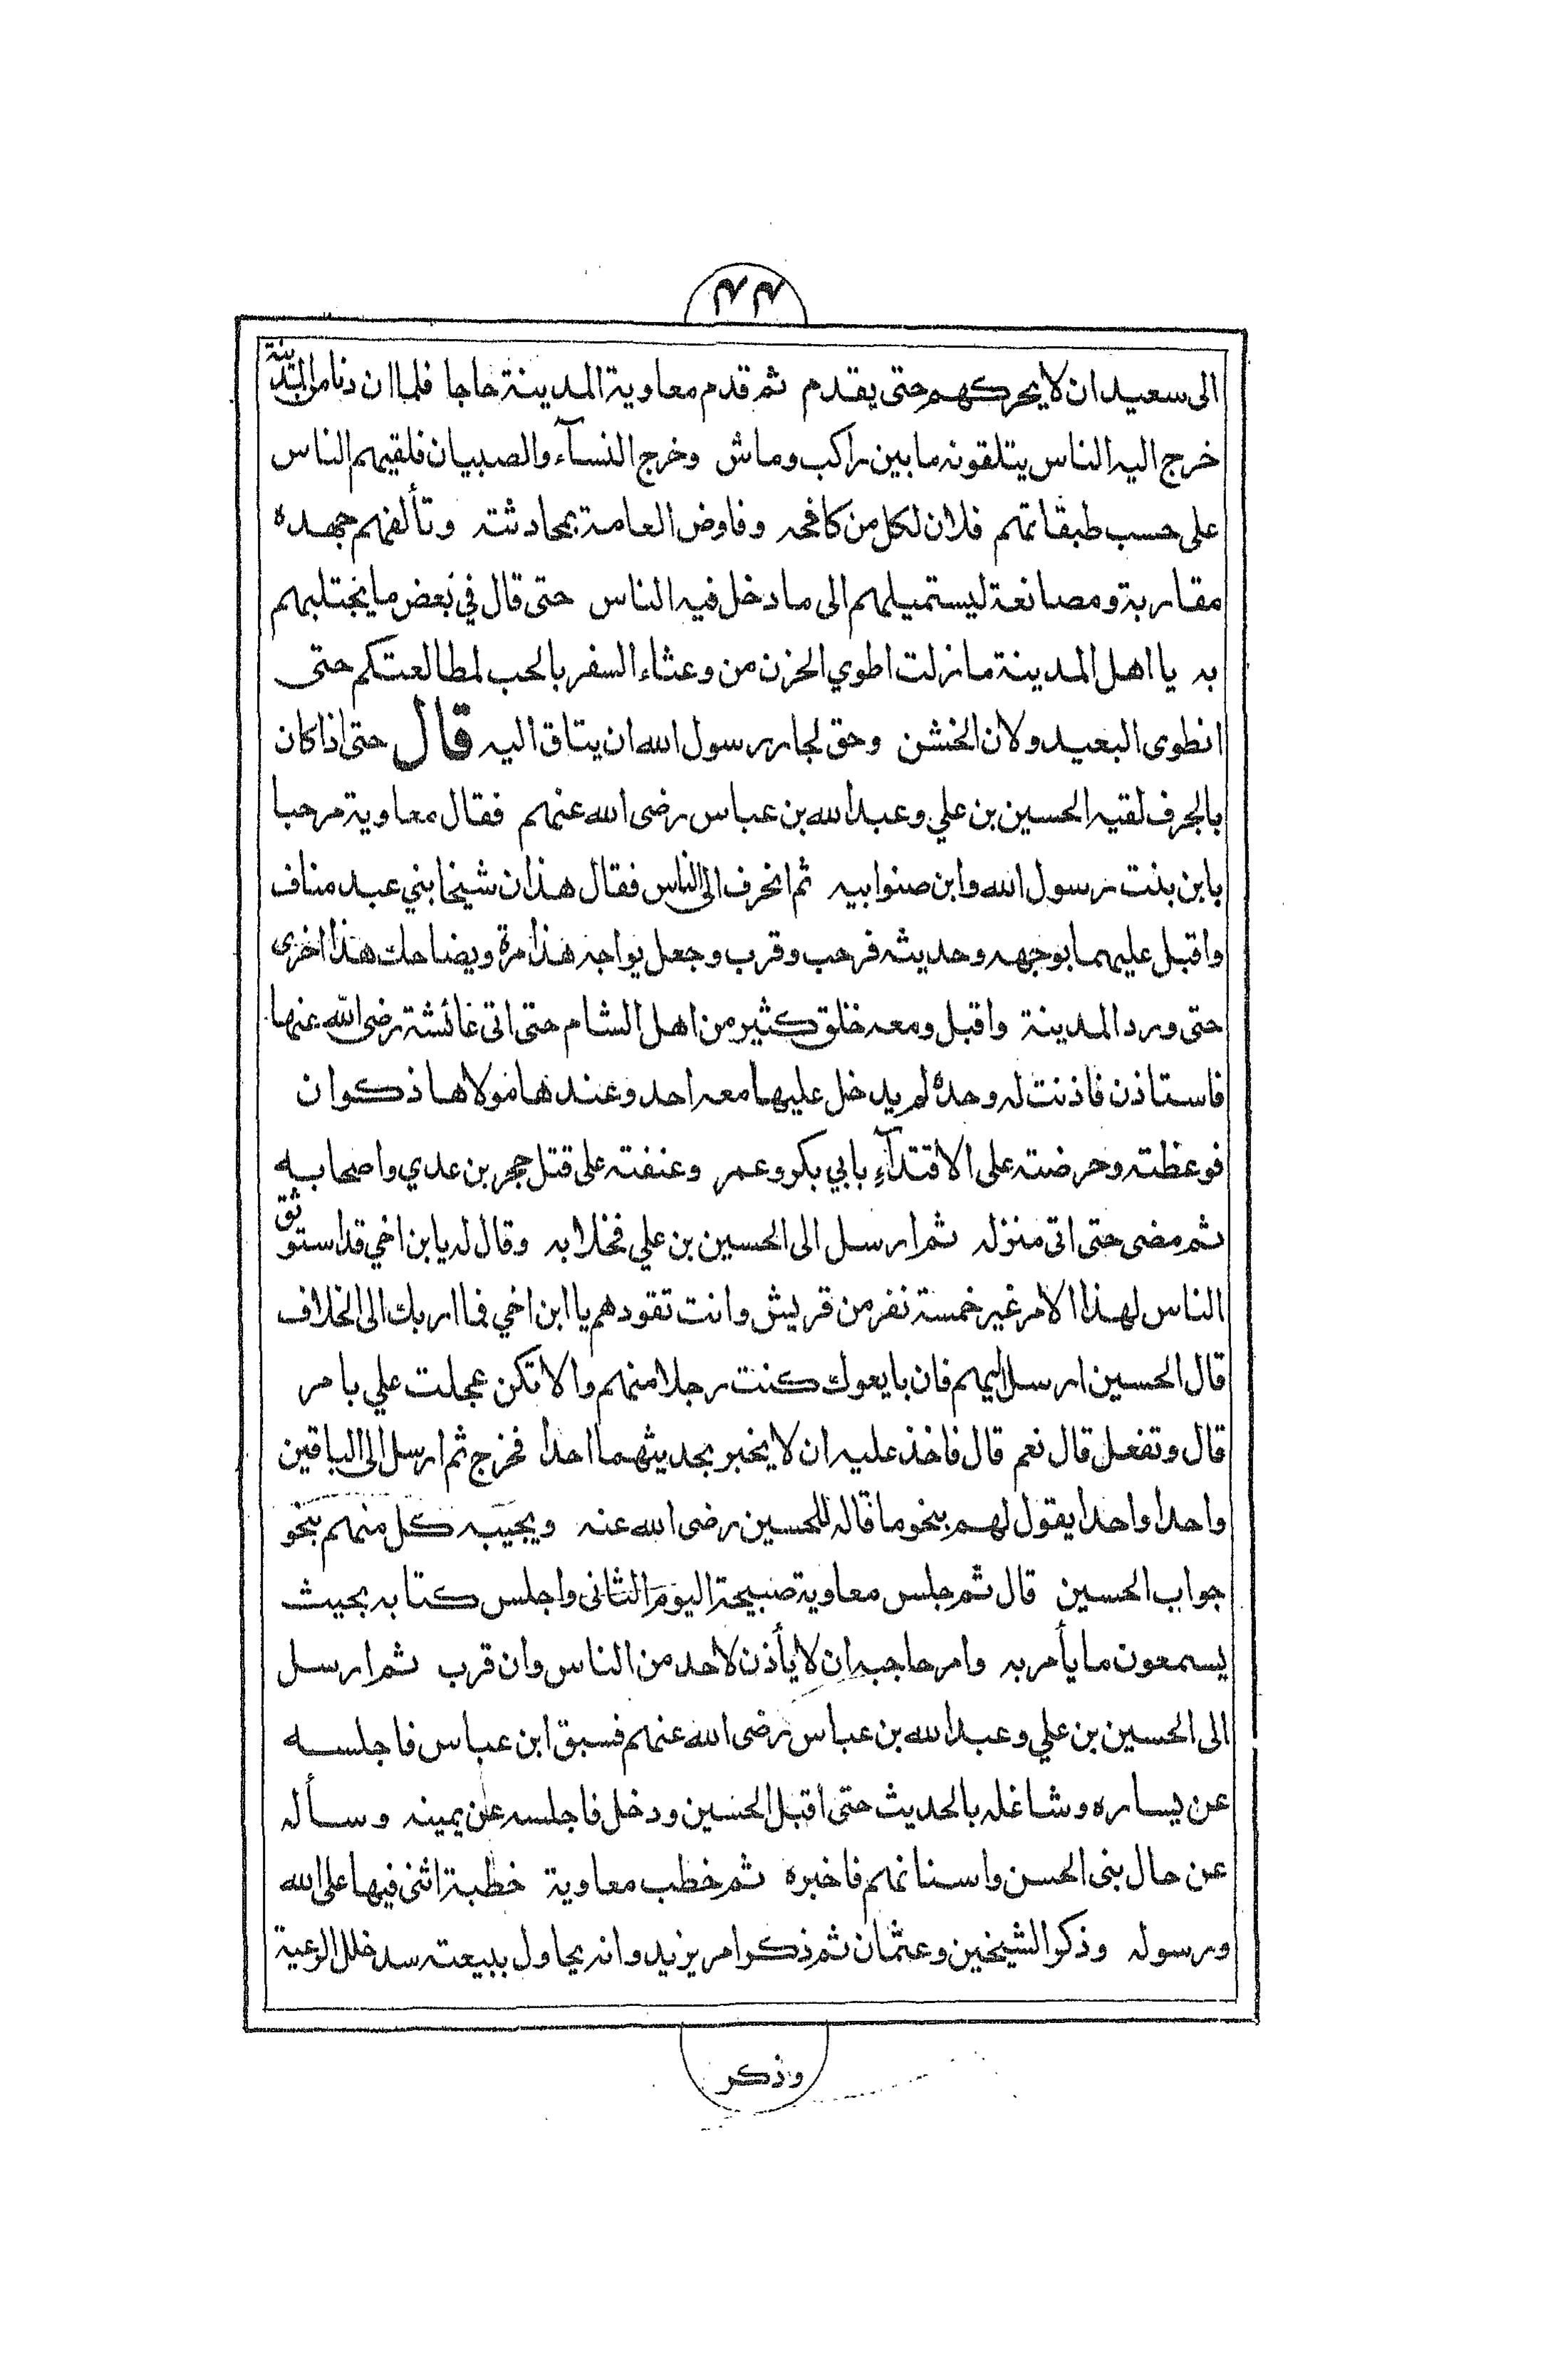 ٤٤
الى سعيد ان لا يحركهم حتى يقدم ثم قدم معاوية المدينة حاجا فلما ان دنا من المدينة
خرج اليه الناس يتلقونه ما بين راكب وماش وخرج النسآء والصبيان فلقيهم الناس
على حسب طبقاتهم فلان لكل من كافحه وفاوض العامة بمحادثته وتألفهم جهده
مقاربة ومصانعة ليستميلهم الى ما دخل فيه الناس حتى قال في بعض ما يجتلبهم
به يا اهل المدينة ما زلت اطوي الحزن من وعثاء السفر بالحب لمطالعتكم حتى
انطوى البعيد ولان الخشن وحق لجار رسول الله ان يتاق اليه قال حتى اذا كان
بالجرف لقيه الحسين بن علي وعبد الله بن عباس رضى الله عنهم فقال معاوية مرحبا
بابن بنت رسول الله وابن صنو ابيه ثم انحرف الى الناس فقال هذان شيخا بني عبد مناف
واقبل عليهما بوجهه وحديثه فرحب وقرب وجعل يواجه هذا مرة ويضاحك هذا اخرى
حتى ورد المدينة واقبل ومعه خلق كثير من اهل الشام حتى اتى عائشة رضى الله عنها
فاستاذن فاذنت له وحده لم يدخل عليها معه احد وعندها مولاها ذكوان
فوعظته وحرضته على الاقتدآء بابي بكر وعمر وعنفته على قتل حجر بن عدي واصحابه
ثم مضى حتى اتى منزله ثم ارسل الى الحسين بن علي فخلا به وقال له يا بن اخي قد استوثق
الناس لهذا الامر غير خمسة نفر من قريش وانت تقودهم يا ابن اخي فما اربك الى الخلاف
قال الحسين ارسل اليهم فان بايعوك كنت رجلا منهم والا تكن عجلت علي بامر
قال وتفعل قال نعم قال فاخذ عليه ان لا يخبر بحديثهما احدا فخرج ثم ارسل الى الباقين
واحدا واحدا يقول لهم بنحو ما قاله للحسين رضى الله عنه ويجيبه كل منهم بنحو
جواب الحسين قال ثم جلس معاوية صبيحة اليوم الثانى واجلس كتابه بحيث
يسمعون ما يأمر به وامر حاجبه ان لا يأذن لاحد من الناس وان قرب ثم ارسل
الى الحسين بن علي وعبد الله بن عباس رضى الله عنهم فسبق ابن عباس فاجلسه
عن يساره وشاغله بالحديث حتى اقبل الحسين ودخل فاجلسه عن يمينه وسأله
عن حال بنى الحسن واسنانهم فاخبره ثم خطب معاوية خطبة اثنى فيها على الله
ورسوله وذكر الشيخين وعثمان ثم ذكر امر يزيد وانه يحاول ببيعته سد خلل الرعية
وذكر